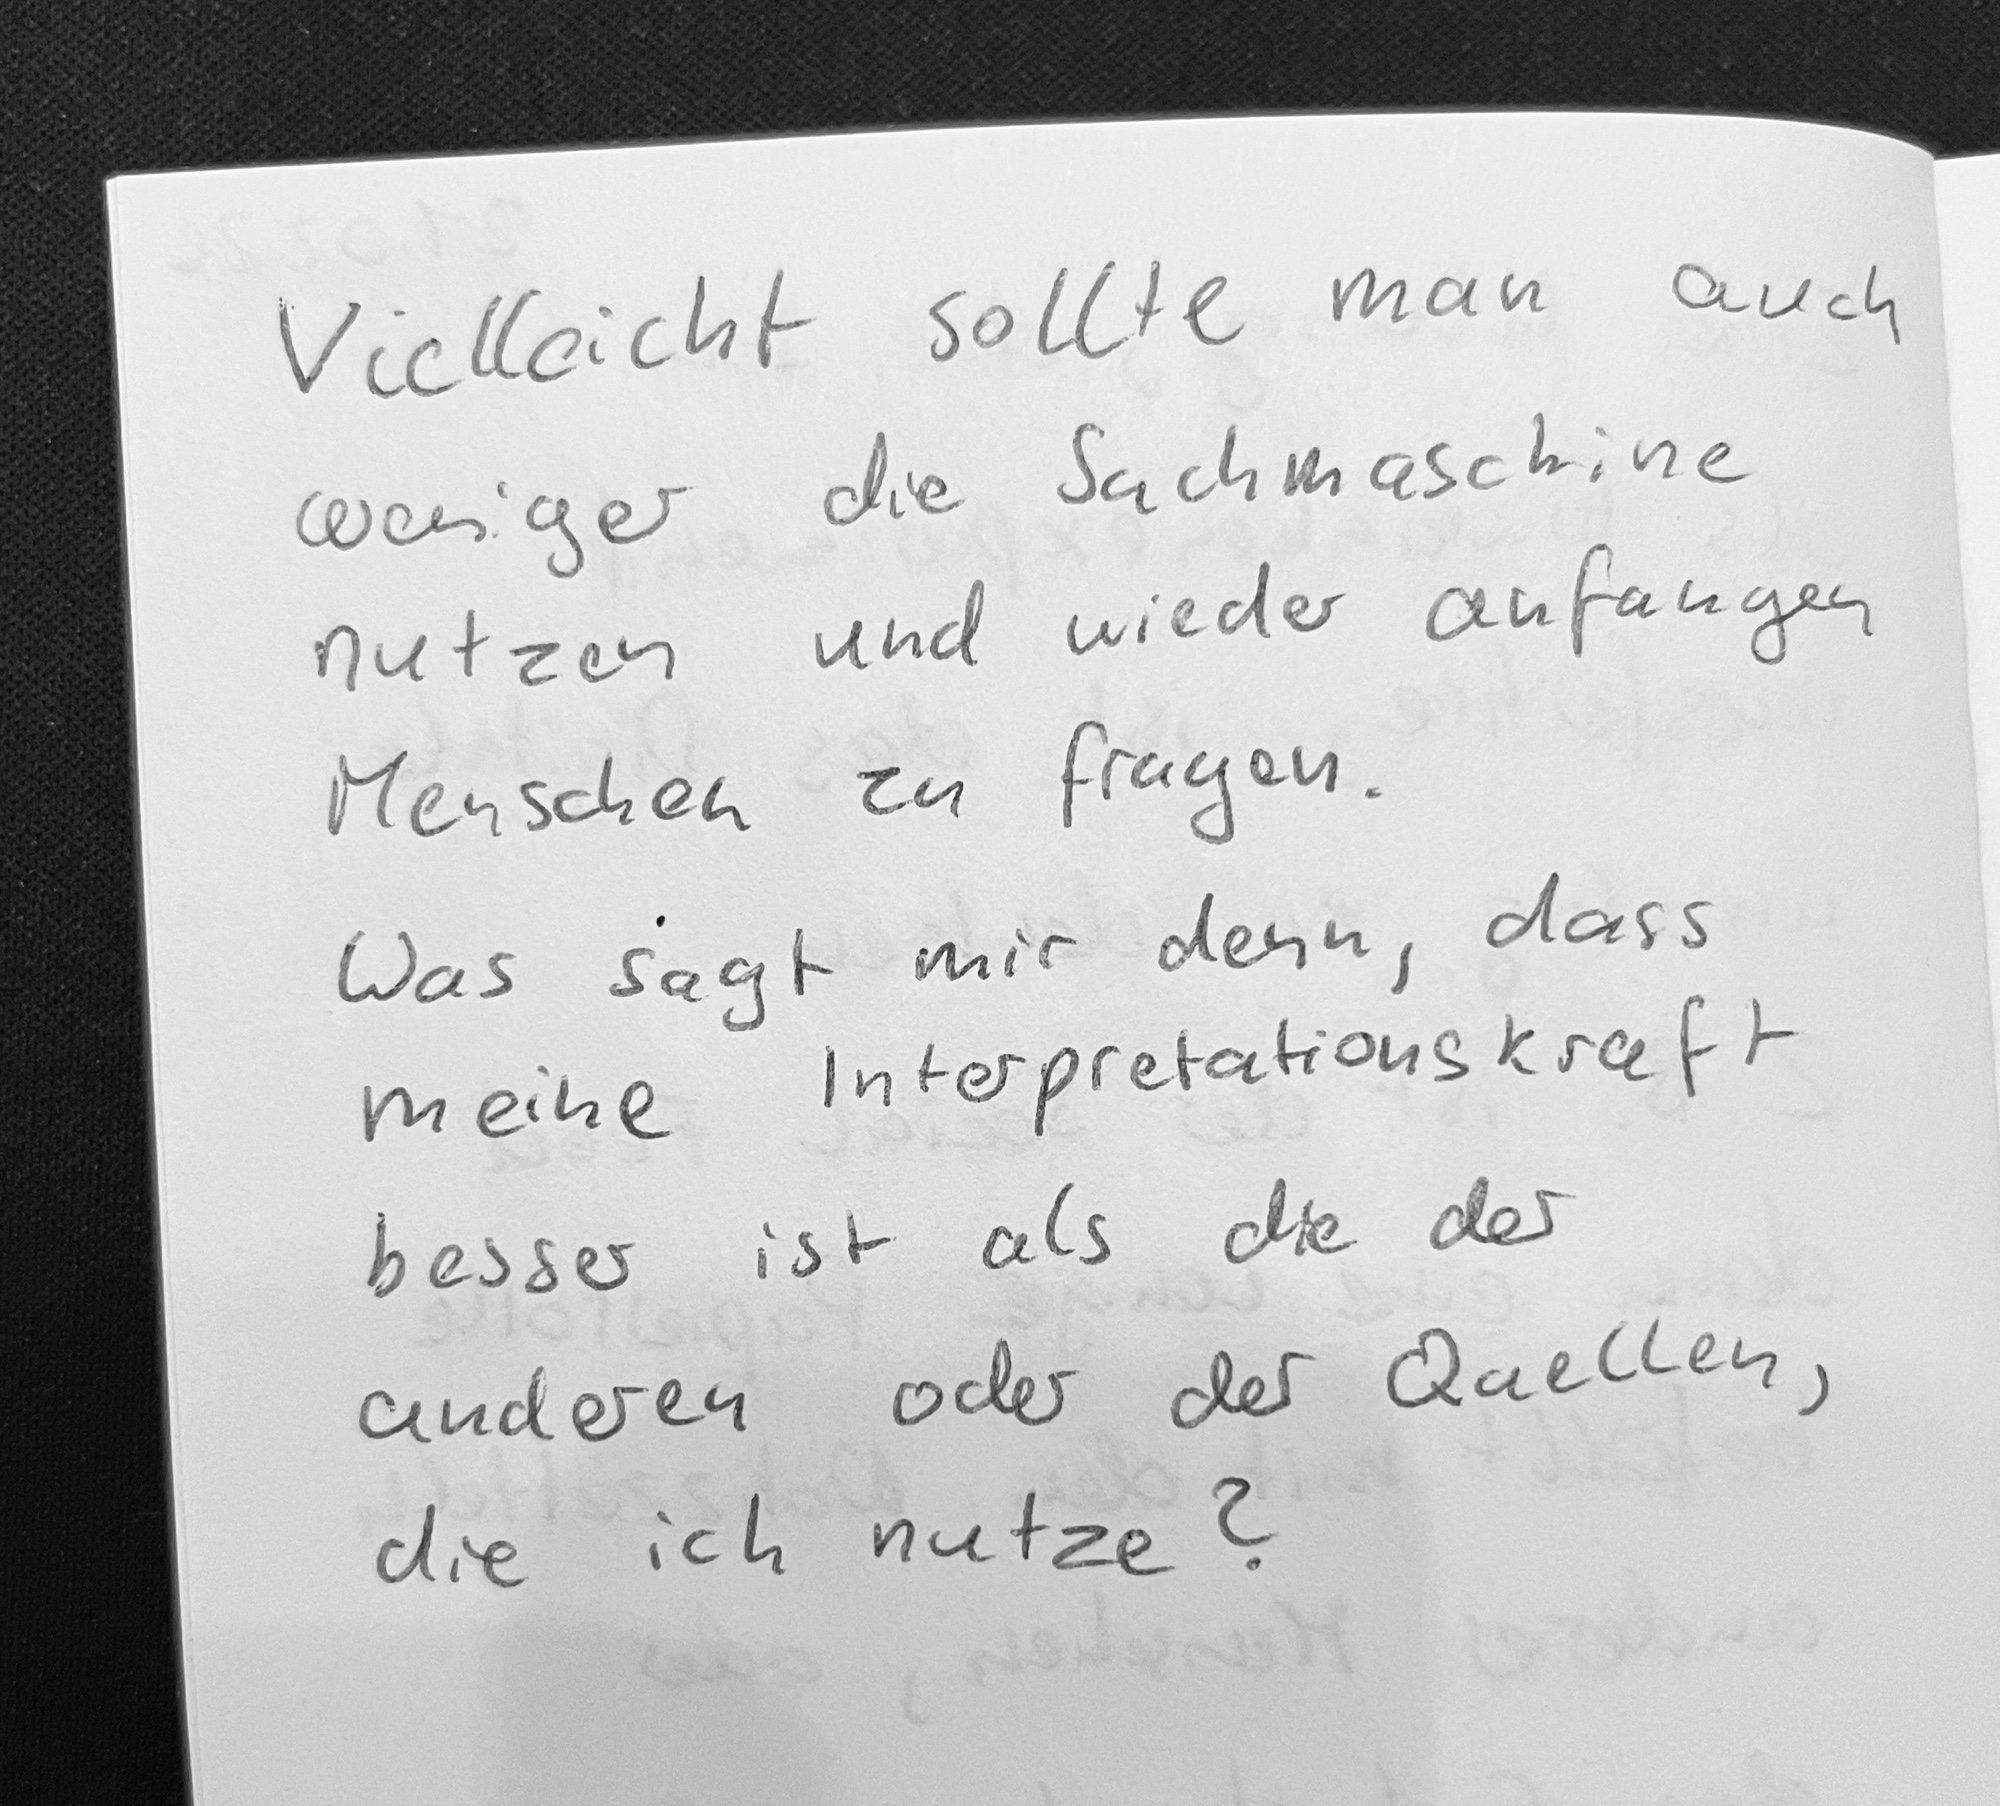 Vielleicht sollte man auch
weniger die Sachmaschine
nutzen und wieder anfangen
Menschen zu fragen.
Was sagt mir denn, dass
meine Interpretationskraft
besser ist als die der
anderen oder der Quellen,
die ich nutze?